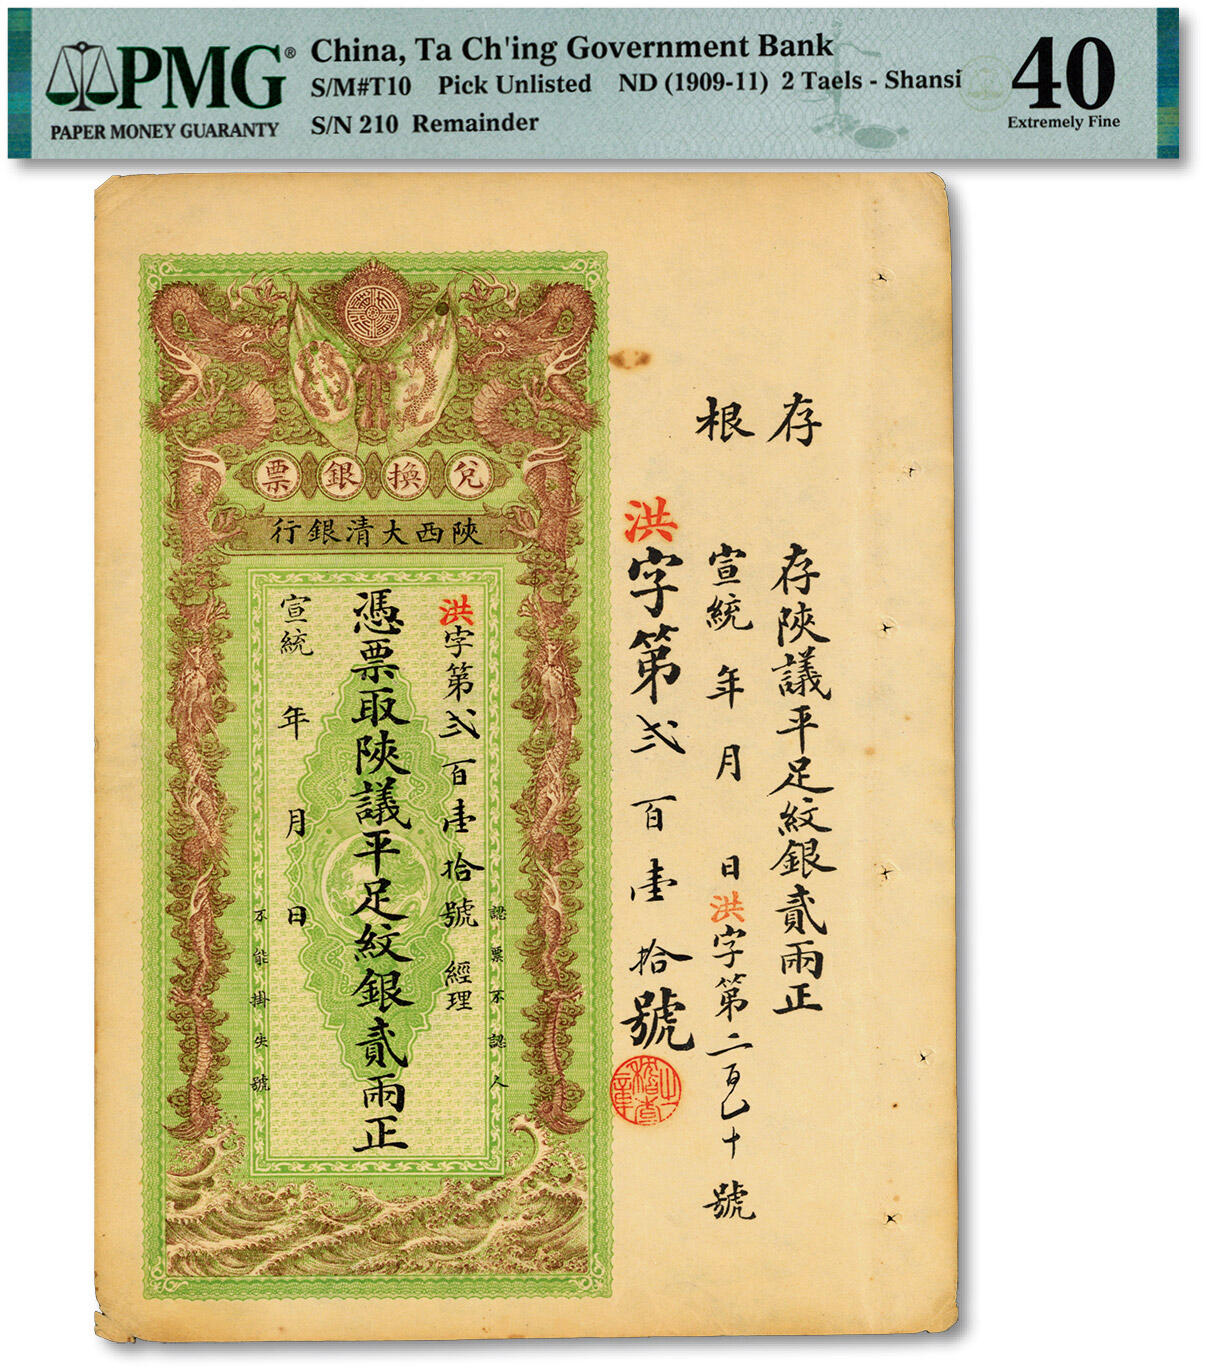 PMG®
PAPER MONEY GUARANTY
China, Ta Ch'ing Government Bank
S/M#T10 Pick Unlisted ND (1909-11) 2 Taels - Shansi
S/N 210 Remainder
40
Extremely Fine
兌換銀票
陝西大清銀行
洪字第弍百壹拾號 經理
憑票取陝議平足紋銀貳兩正
宣統 年 月 日
認票不認人
不能掛失號
存根
存陝議平足紋銀貳兩正
宣統 年 月 日 洪字第二百乙十號
洪字第弍百壹拾號